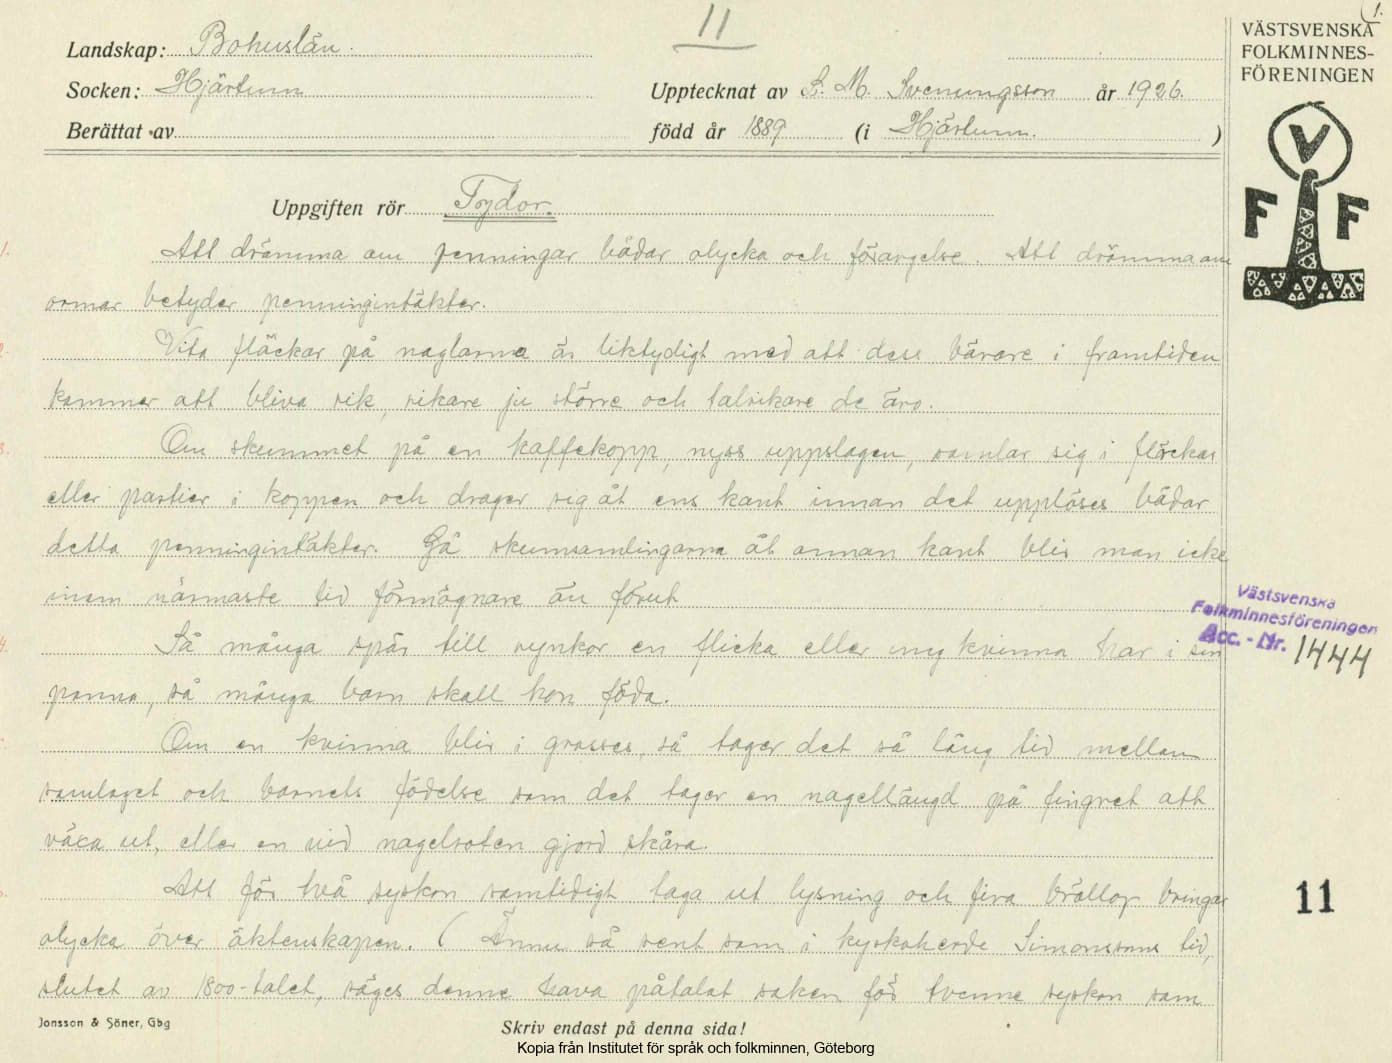 11
1.
Landskap: Bohuslän.
Socken: Hjärtum
Upptecknat av S. M. Svenungsson år 1926.
Berättat av
född år 1889 (i Hjärtum. )
VÄSTSVENSKA
FOLKMINNES-
FÖRENINGEN
V
F F
Uppgiften rör Tydor.
1. Att drömma om penningar bådar olycka och förargelse. Att drömma om
ormar betyder penningintäkter.
2. Vita fläckar på naglarna är liktydigt med att dess bärare i framtiden
kommer att bliva rik, rikare ju större och talrikare de äro.
3. Om skummet på en kaffekopp, nyss uppslagen, samlar sig i fläckar
eller partier i koppen och drager sig åt ens kant innan det upplöses bådar
detta penningintäkter. Gå skumsamlingarna åt annan kant blir man icke
inom närmaste tid förmögnare än förut
4. Så många spår till rynkor en flicka eller ung kvinna har i sin
panna, så många barn skall hon föda.
Om en kvinna blir i grosses, så tager det så lång tid mellan
samlaget och barnets födelse som det tager en nagellängd på fingret att
växa ut, eller en vid nagelroten gjord skåra.
Att för två syskon samtidigt taga ut lysning och fira bröllop bringar
olycka över äktenskapen. (Ännu så sent som i kyrkoherde Simonssons tid,
slutet av 1800-talet, säges denne hava påtalat saken för tvenne syskon som
Västsvenska
Folkminnesföreningen
Acc. - Nr. 1444
11
Jonsson & Söner, Gbg
Skriv endast på denna sida!
Kopia från Institutet för språk och folkminnen, Göteborg